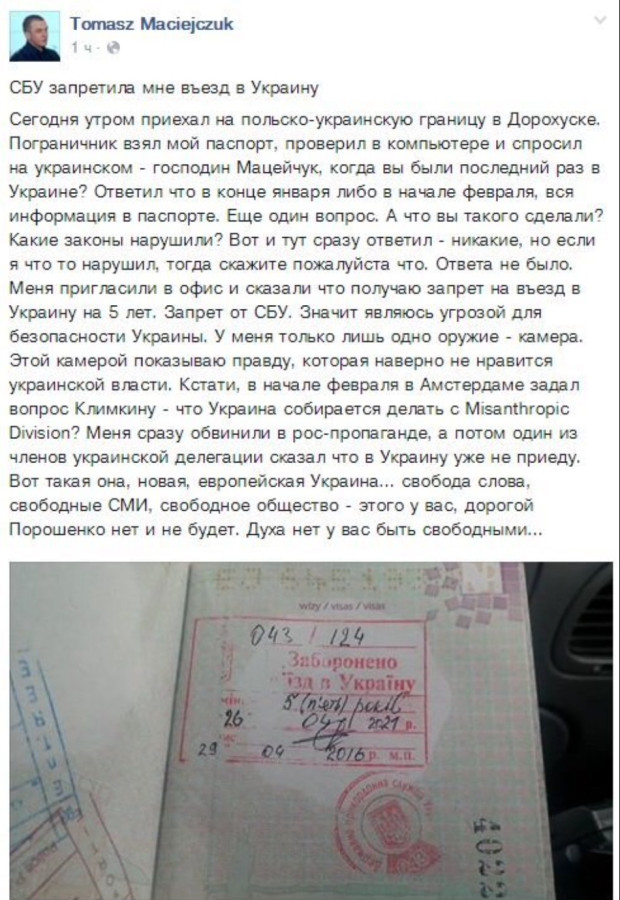 Tomasz Maciejczuk
1 ч ·
СБУ запретила мне въезд в Украину
Сегодня утром приехал на польско-украинскую границу в Дорохуске.
Пограничник взял мой паспорт, проверил в компьютере и спросил
на украинском - господин Мацейчук, когда вы были последний раз в
Украине? Ответил что в конце января либо в начале февраля, вся
информация в паспорте. Еще один вопрос. А что вы такого сделали?
Какие законы нарушили? Вот и тут сразу ответил - никакие, но если
я что то нарушил, тогда скажите пожалуйста что. Ответа не было.
Меня пригласили в офис и сказали что получаю запрет на въезд в
Украину на 5 лет. Запрет от СБУ. Значит являюсь угрозой для
безопасности Украины. У меня только лишь одно оружие - камера.
Этой камерой показываю правду, которая наверно не нравится
украинской власти. Кстати, в начале февраля в Амстердаме задал
вопрос Климкину - что Украина собирается делать с Misanthropic
Division? Меня сразу обвинили в рос-пропаганде, а потом один из
членов украинской делегации сказал что в Украину уже не приеду.
Вот такая она, новая, европейская Украина... свобода слова,
свободные СМИ, свободное общество - этого у вас, дорогой
Порошенко нет и не будет. Духа нет у вас быть свободными...
wizy / visas / visas
043 / 124
Заборонено
їзд в Україну
5 (п'ять) років
26 04 2021 р.
29 04 2016 р. м.п.
4022